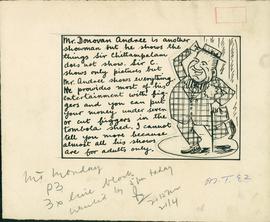 Mr. Donovan Andree is another
showman but he shows the
things Sir Chittampalam
does not show. Sir C.
shows only pictures but
Mr. Andree shows everything.
He provides most of his
entertainment with big-
gers and you can put
your money under seven
or cut biggers in the
tombola shed. I cannot
tell you more because
almost all his shows
are for adults only.
Monday
P3
3x line block
wanted by today
2/4